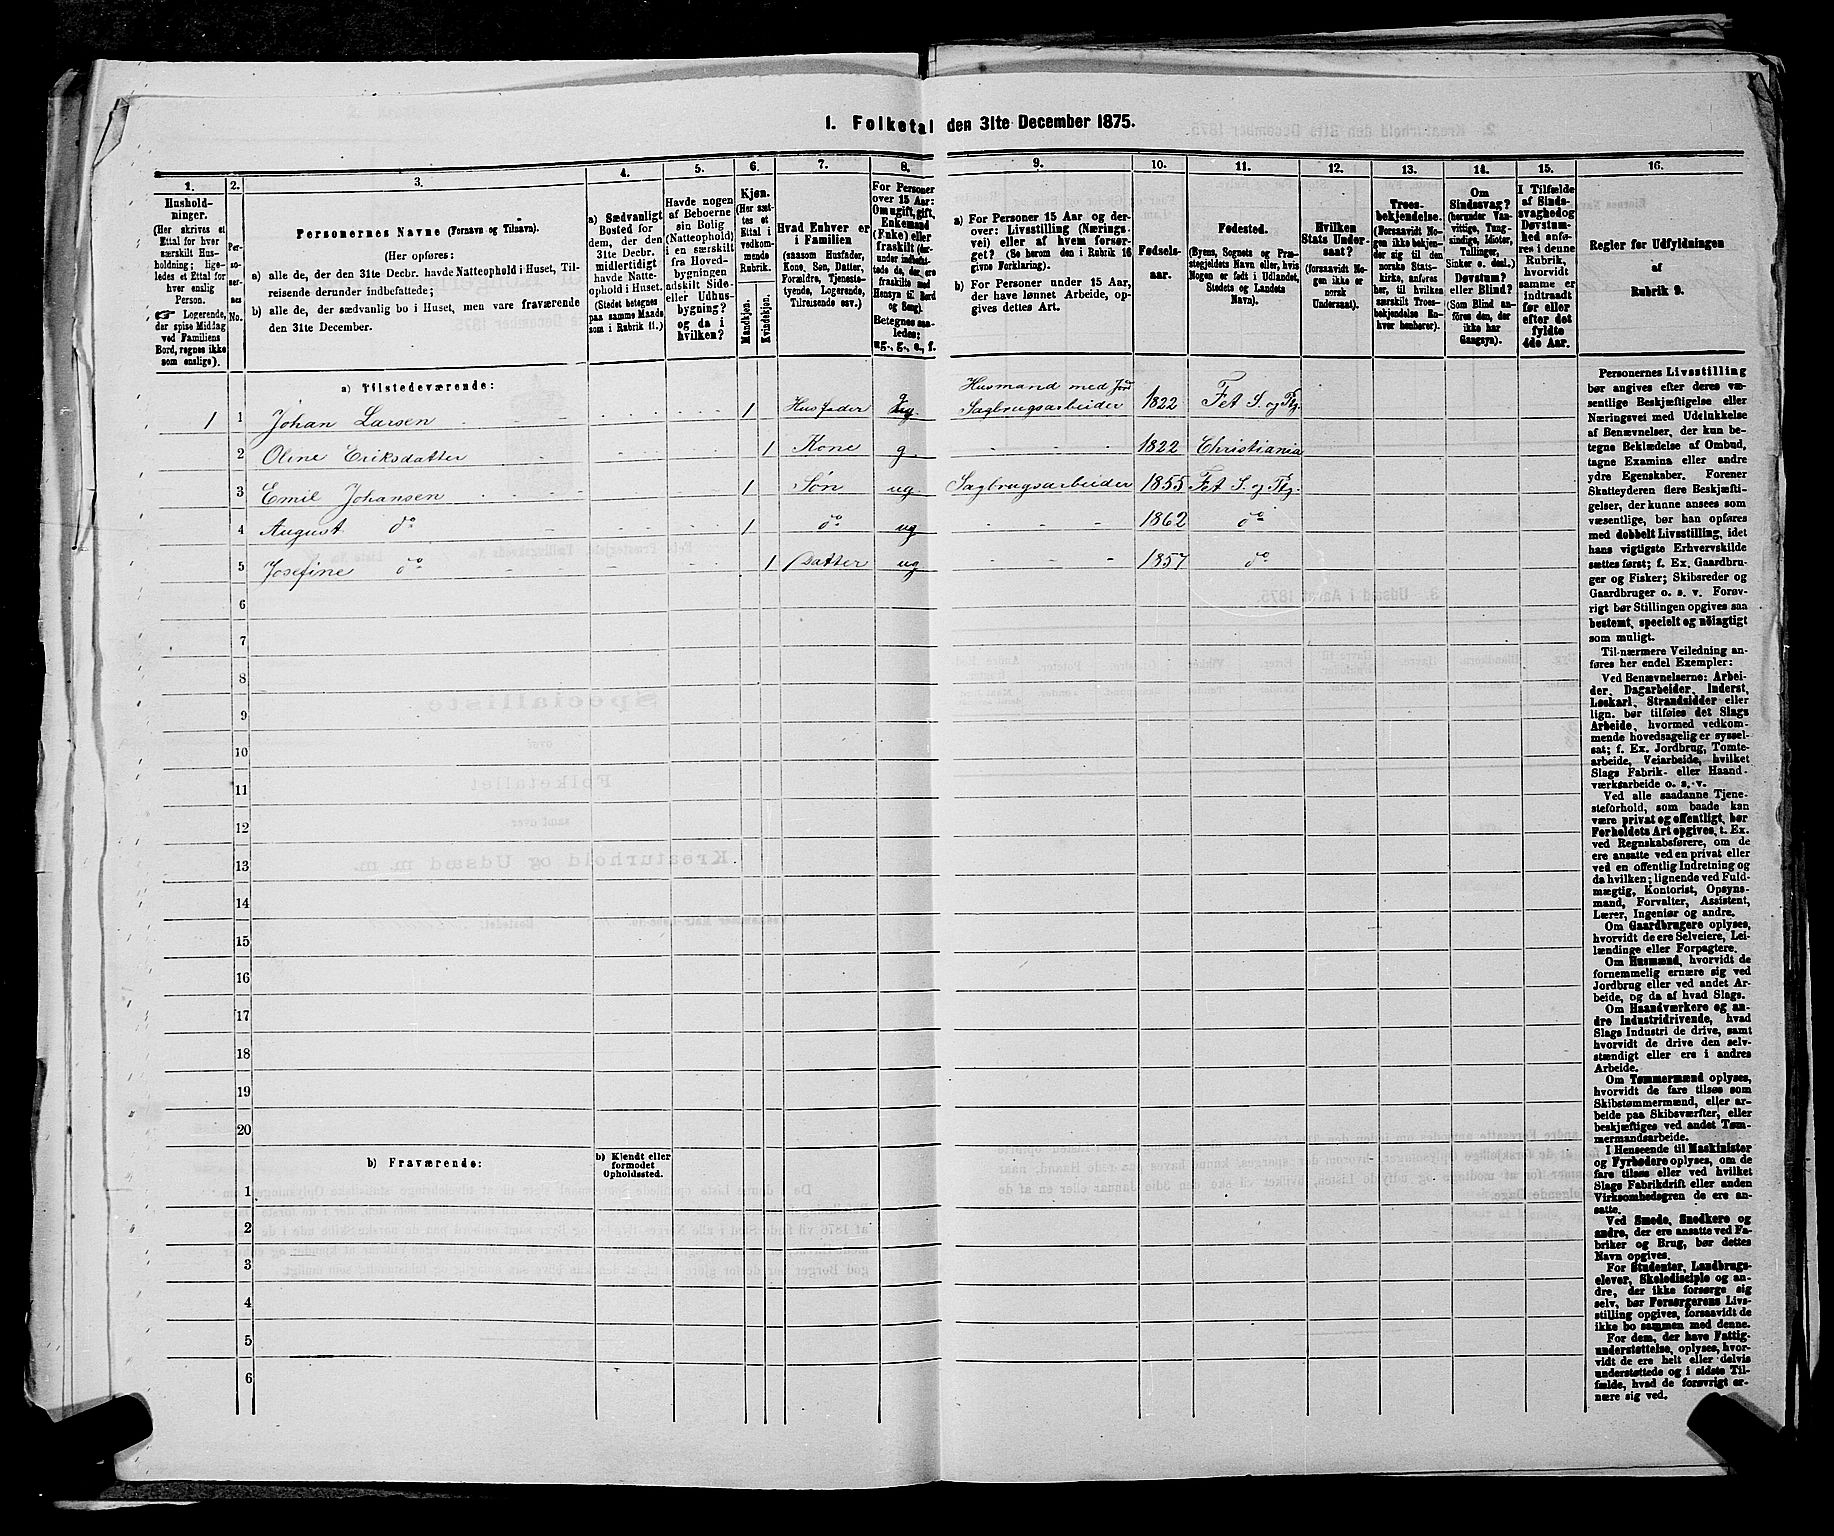 1. Folketal den 31te December 1875.
1.
Hushold-
ninger.
(Her skrives et
Ettal for hver
særskilt Hus-
holdning; lige-
ledes et Ettal for
hver enslig
Person.
☞ Logerende,
der spise Middag
ved Familiens
Bord, regnes ikke
som enslige).
2.
Per-
so-
ner-
nes
No.
3.
Personernes Navne (Fornavn og Tilnavn).
(Her opføres:
a) alle de, der den 31te Decbr. havde Natteophold i Huset, Til-
reisende derunder indbefattede;
b) alle de, der sædvanlig bo i Huset, men vare fraværende
den 31te December.
4.
a) Sædvanligt
Bosted for
dem, der den
31te Decbr.
midlertidigt
havde Natte-
ophold i Huset.
(Stedet betegnes
paa samme Maade
som i Rubrik 11.)
5.
Havde nogen
af Beboerne
sin Bolig
(Natteophold)
i en særskilt
fra Hoved-
bygningen
adskilt Side-
eller Udhus-
bygning?
og da i
hvilken?
6.
Kjøn.
(Her sæt-
tes et
Ettal i
vedkom-
mende
Rubrik.
Mandkjøn.
Kvindekjøn.
7.
Hvad Enhver er
i Familien
(saasom Husfader,
Kone, Søn, Datter,
Forældre, Tjeneste-
tyende, Logerende,
Tilreisende osv.)
8.
For Personer
over 15 Aar:
Om ugift, gift,
Enkemand
(Enke) eller
fraskilt (der-
under indbefat-
tede de, der ere
fraskilte med
Hensyn til Bord
og Seng).
Betegnes saa-
ledes:
ug., g., e., f.
9.
a) For Personer 15 Aar og der-
over: Livsstilling (Nærings-
vei) eller af hvem forsør-
get? (Se herom den i Rubrik 16
givne Forklaring).
b) For Personer under 15 Aar,
der have lønnet Arbeide, op-
gives dettes Art.
10.
Fødsels-
aar.
11.
Fødested.
(Byens, Sognets og Præ-
stegjeldets Navn eller, hvis
Nogen er født i Udlandet,
Stedets og Landets
Navn).
12.
Hvilken
Stats Under-
saat?
(forsaavidt No-
gen ikke er
norsk
Undersaat).
13.
Troes-
bekjendelse.
(Forsaavidt No-
gen ikke bekjen-
der sig til den
norske Stats-
kirke, anføres
her, til hvilken
særskilt Troes-
bekjendelse En-
hver henhører).
14.
Om
Sindssvag?
(herunder Van-
vittige, Tung-
sindige, Idioter,
Tullinger,
Sinker o. desl.)
Døvstum?
eller Blind?
(Som Blind an-
føres den, der
ikke har
Gangsyn).
15.
I Tilfælde
af Sinds-
svaghed og
Døvstum-
hed anfø-
res i denne
Rubrik,
hvorvidt
samme er
indtraadt
før eller
efter det
fyldte
4de Aar.
16.
Regler for Udfyldningen
af
Rubrik 9.
a) Tilstedeværende:
1 1 Johan Larsen 1 Husfader g Husmand med Jord Sagbrugsarbeider 1822 Fet S. og Pg.
2 Oline Eriksdatter 1 Kone g 1822 Christiania
3 Emil Johansen 1 Søn ug. Sagbrugsarbeider 1855 Fet S. og Pg.
4 August do 1 do ug 1862 do
5 Josefine do 1 Datter ug 1857 do
6
7
8
9
10
11
12
13
14
15
16
17
18
19
20
b) Fraværende:
b) Kjendt eller
formodet
Opholdssted.
1
2
3
4
5
6
Personernes Livsstilling
bør angives efter deres væ-
sentlige Beskjæftigelse eller
Næringsvei med Udelukkelse
af Benævnelser, der kun be-
tegne Beklædelse af Ombud,
tagne Examina eller andre
ydre Egenskaber. Forener
Skatteyderen flere Beskjæfti-
gelser, der kunne ansees som
væsentlige, bør han opføres
med dobbelt Livsstilling, idet
hans vigtigste Erhvervskilde
sættes først; f. Ex. Gaardbru-
ger og Fisker; Skibsreder og
Gaardbruger o. s. v. Forøv-
rigt bør Stillingen opgives saa
bestemt, specielt og nøiagtigt
som muligt.
Til nærmere Veiledning an-
føres her endel Exempler:
Ved Benævnelserne: Arbei-
der, Dagarbeider, Inderst,
Løskarl, Strandsidder eller
lign. bør tilføies det Slags
Arbeide, hvormed vedkom-
mende hovedsagelig er syssel-
sat; f. Ex. Jordbrug, Tomte-
arbeide, Veiarbeide, hvilket
Slags Fabrik- eller Haand-
værksarbeide o. s. v.
Ved alle saadanne Tjene-
steforhold, som baade kan
være privat og offentligt, bør
Forholdets Art opgives, t. Ex.
ved Regnskabsførere, om de
ere ansatte ved en privat eller
ved en offentlig Indretning og
da hvilken; lignende ved Fuld-
mægtig, Kontorist, Opsyns-
mand, Forvalter, Assistent,
Lærer, Ingeniør og andre.
Om Gaardbrugere oplyses,
hvorvidt de ere Selveiere, Lei-
lændinge eller Forpagtere.
Om Husmænd, hvorvidt de
fornemmelig ernære sig ved
Jordbrug eller ved andet Ar-
beide, og da af hvad Slags.
Om Haandværkere og an-
dre Industridrivende, hvad
Slags Industri de drive, samt
hvorvidt de drive den selv-
stændigt eller ere i andres
Arbeide.
Om Tømmermænd oplyses,
hvorvidt de fare tilsøs som
Skibstømmermænd, eller ar-
beide paa Skibsværfter, eller
beskjæftiges ved andet Tøm-
mermandsarbeide.
I Henseende til Maskinister
og Fyrbødere oplyses, om de
fare tilsøs eller ved hvilket
Slags Fabrikdrift eller anden
Virksomhedsgren de ere an-
satte.
Ved Smede, Snedkere og
andre, der ere ansatte ved Fa-
briker og Brug, bør dettes
Navn opgives.
For Studenter, Landbrugs-
elever, Skoledisciple og an-
dre, der ikke forsørge sig
selv, bør Forsørgerens Livs-
stilling opgives, forsaavidt de
ikke bo sammen med denne.
For dem, der have Fattig-
understøttelse, oplyses, hvor-
vidt de ere helt eller delvis
understøttede og i sidste Til-
fælde, hvad de forøvrigt er-
nære sig ved.